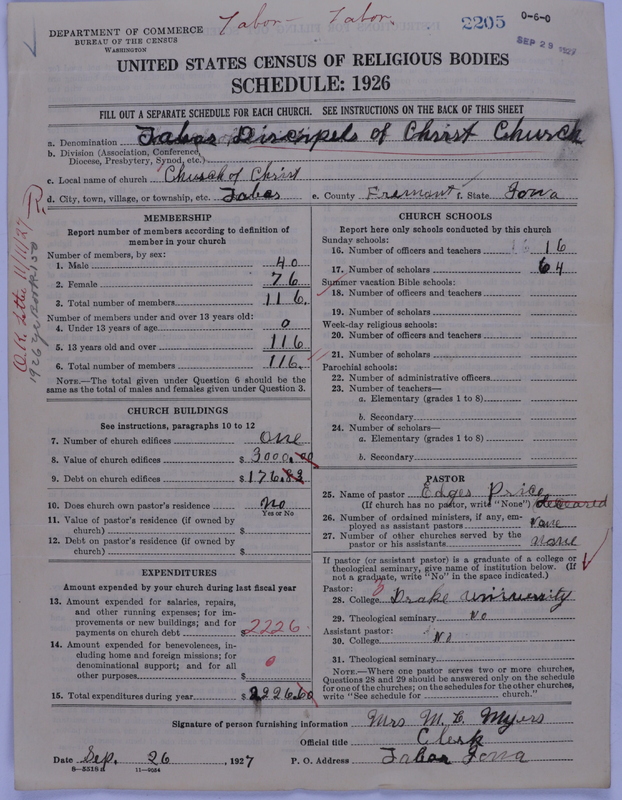 Tabor - Tabor.
2205
0-6-0
SEP 29 1927
DEPARTMENT OF COMMERCE
BUREAU OF THE CENSUS
WASHINGTON
UNITED STATES CENSUS OF RELIGIOUS BODIES
SCHEDULE: 1926
FILL OUT A SEPARATE SCHEDULE FOR EACH CHURCH. SEE INSTRUCTIONS ON THE BACK OF THIS SHEET
a. Denomination Tabor Discipels of Christ Church
b. Division (Association, Conference, Diocese, Presbytery, Synod, etc.)
c. Local name of church Church of Christ
d. City, town, village, or township, etc. Tabor e. County Fremont f. State Iowa
O.K. Letter 11/11/27 R.
MEMBERSHIP
Report number of members according to definition of
member in your church
Number of members, by sex:
1. Male 40
2. Female 76
3. Total number of members 116.
Number of members under and over 13 years old:
4. Under 13 years of age 0
5. 13 years old and over 116
6. Total number of members 116.
NOTE.—The total given under Question 6 should be
same as the total of males and females given under Question 3.
CHURCH BUILDINGS
See instructions, paragraphs 10 to 12
7. Number of church edifices one
8. Value of church edifices $ 3000.00
9. Debt on church edifices $ 176.83
10. Does church own pastor's residence? No
Yes or No
11. Value of pastor's residence (if owned by
church) $
12. Debt on pastor's residence (if owned by
church) $
EXPENDITURES
Amount expended by your church during last fiscal year
13. Amount expended for salaries, repairs,
and other running expenses; for im-
provements or new buildings; and for
payments on church debt $ 2226.
14. Amount expended for benevolences, in-
cluding home and foreign missions; for
denominational support; and for all
other purposes $ 0
15. Total expenditures during year $ 2226.00
CHURCH SCHOOLS
Report here only schools conducted by this church
Sunday schools:
16. Number of officers and teachers 16
17. Number of scholars 64
Summer vacation Bible schools:
18. Number of officers and teachers
19. Number of scholars
Week-day religious schools:
20. Number of officers and teachers
21. Number of scholars
Parochial schools:
22. Number of administrative officers
23. Number of teachers—
a. Elementary (grades 1 to 8)
b. Secondary
24. Number of scholars—
a. Elementary (grades 1 to 8)
b. Secondary
PASTOR
25. Name of pastor Edger Price
(If church has no pastor, write "None")
26. Number of ordained ministers, if any, em-
ployed as assistant pastors None
27. Number of other churches served by the
pastor or his assistants none
If pastor (or assistant pastor) is a graduate of a college or
theological seminary, give name of institution below. (If
not a graduate, write "No" in the space indicated.)
Pastor:
28. College Drake University
29. Theological seminary No
Assistant pastor:
30. College No
31. Theological seminary
NOTE.—Where one pastor serves two or more churches,
Questions 28 and 29 should be answered only on the schedule
for one of the churches; on the schedules for the other churches,
write "See schedule for church."
Signature of person furnishing information Mrs M. E. Myers
Official title Clerk
Date Sep. 26, 1927 P. O. Address Tabor Iowa
8—5316 a 11—9034